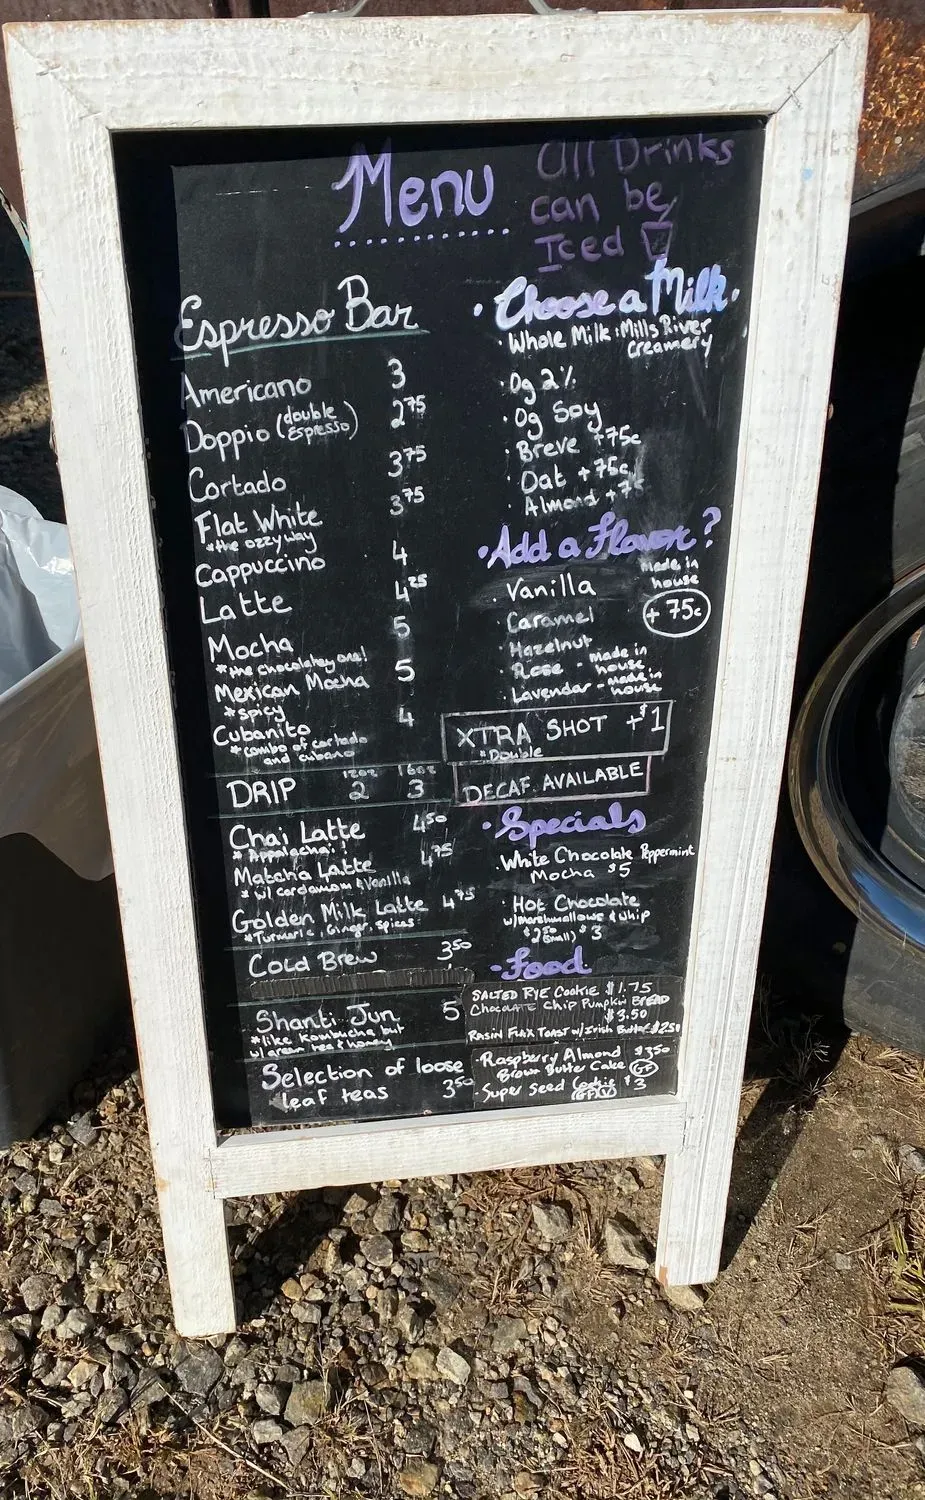 Menu
All Drinks
can be
Iced
Espresso Bar
Americano 3
Doppio (double Espresso) 2.75
Cortado 3.75
Flat White 3.75
*the ozzy way
Cappuccino 4
Latte 4.25
Mocha 5
*the chocolatey one!
Mexican Mocha 5
*spicy
Cubanito 4
*combo of cortado
and cubano
12oz 16oz
DRIP 2 3
Chai Latte 4.50
*Appalachai!
Matcha Latte 4.75
*w/ cardamom & vanilla
Golden Milk Latte 4.75
*Turmeric, Ginger, Spices
Cold Brew 3.50
Shanti Jun 5
*like kombucha but
w/ green tea & honey
Selection of loose
leaf teas 3.50
·Choose a Milk·
·Whole Milk: Mills River
Creamery
·Og 2%
·Og Soy
·Breve +75c
·Oat +75c
·Almond +75
·Add a Flavor?
·Vanilla
made in
house
+75c
·Caramel
·Hazelnut
·Rose - made in
house
·Lavendar - made in
house
XTRA SHOT +$1
*Double
DECAF. AVAILABLE
·Specials
·White Chocolate Peppermint
Mocha $5
·Hot Chocolate
w/marshmallows & whip
$2.50 (small) $3
·Food
SALTED RYE COOKIE $1.75
CHOCOLATE CHIP PUMPKIN BREAD
$3.50
RASIN FLAX TOAST w/ IRISH BUTTER $2.50
·Raspberry Almond $3.50
Brown Butter Cake (GF)
·Super Seed Cookie $3
(GF,V)